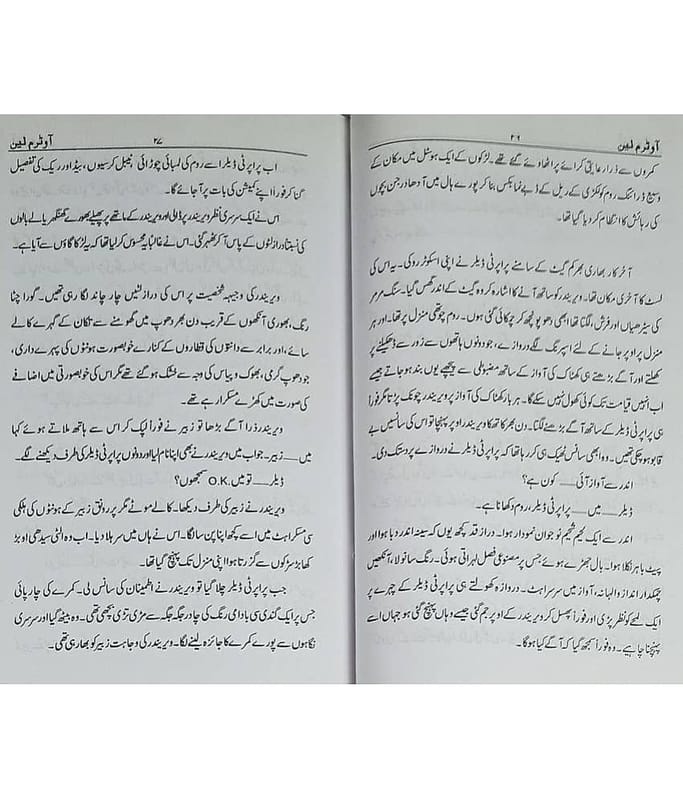 آوٹرم لین
۲۶
کمروں سے ذرا رعایتی کرائے پر اٹھا دئے گئے تھے۔ لڑکوں کے ایک ہوسٹل میں مکان کے
وسیع ڈرائنگ روم کو لکڑی کے ریل کے ڈبے نما بکس بنا کر پورے ہال میں آدھا درجن بچوں
کی رہائش کا انتظام کر دیا گیا تھا۔
آخر کار بھاری بھرکم گیٹ کے سامنے پراپرٹی ڈیلر نے اپنی اسکوٹر روکی۔ یہ اس کی
لسٹ کا آخری مکان تھا۔ ویریندر کو ساتھ آنے کا اشارہ کر وہ گیٹ کے اندر گھس گیا۔ سنگ مرمر
کی سیڑھیاں اور فرش، لگتا تھا ابھی دھو پونچھ کر چمکائی گئی ہوں۔ روم چوتھی منزل پر تھا۔ اور ہر
منزل پر اوپر جانے کے لئے اسپرنگ لگے دروازے، جو دونوں ہاتھوں سے زور سے ڈھکیلنے پر
کھلتے اور آگے بڑھتے ہی کھٹاک کی آواز کے ساتھ مضبوطی سے پیچھے یوں بند ہو جاتے جیسے
اب انہیں قیامت تک کوئی کھول نہیں سکے گا۔ ہر بار کھٹاک کی آواز پر ویریندر چونک پڑتا مگر فوراً
ہی پراپرٹی ڈیلر کے ساتھ آگے بڑھنے لگتا۔ دن بھر کا تھکا ویریندر اوپر پہنچا تو اس کی سانسیں بے
قابو ہو چکی تھیں۔ وہ ابھی سانس ٹھیک ہی کر رہا تھا کہ پراپرٹی ڈیلر نے دروازے پر دستک دی۔
اندر سے آواز آئی ــــ کون ہے؟
ڈیلر ــــ میں ــــ پراپرٹی ڈیلر، روم دکھانا ہے۔
اندر سے ایک لحیم شحیم نوجوان نمودار ہوا۔ دراز قد کچھ یوں کہ سینہ اندر دبا ہوا اور
پیٹ باہر نکلا ہوا۔ بال جھڑے ہوئے جس پر مصنوعی فصل لہراتی ہوئی۔ رنگ سانولا، آنکھیں
چمکدار انداز والہانہ، آواز میں سرسراہٹ۔ دروازہ کھولتے ہی پراپرٹی ڈیلر کے چہرے پر
ایک لمحے کو نظر پڑی اور فوراً پھسل کر ویریندر کے اوپر جم گئی جیسے وہاں پہنچ گئی ہو جہاں اسے
پہنچنا چاہیے۔ وہ فوراً سمجھ گیا کہ آگے کیا ہوگا۔
آوٹرم لین
۲۷
اب پراپرٹی ڈیلر اسے روم کی لمبائی چوڑائی، ٹیبل کرسیوں، بیڈ اور ریک کی تفصیل
گنا کر فوراً اپنے کمیشن کی بات پر آ جائے گا۔
اس نے ایک سرسری نظر ویریندر پر ڈالی اور ویریندر کے ماتھے پر پھیلے بھورے گھنگھریالے بالوں
کی نسبتاً دراز لٹوں کے پاس آ کر ٹھہر گئی۔ اس نے غالباً یہ محسوس کر لیا تھا کہ یہ لڑکا گاؤں سے آیا ہے۔
ویریندر کی وجیہہ شخصیت پر اس کی دراز لٹیں چار چاند لگا رہی تھیں۔ گورا چٹا
رنگ، بھوری آنکھوں کے قریب دن بھر دھوپ میں گھومنے سے تکان کے گہرے کالے
سائے، اور برابر سے دانتوں کی قطاروں کے کنارے خوبصورت ہونٹوں کی پہرے داری،
جو دھوپ گرمی، بھوک و پیاس کی وجہ سے خشک ہو گئے تھے مگر اس کی خوبصورتی میں اضافے
کی صورت میں کھڑے مسکرا رہے تھے۔
ویریندر ذرا آگے بڑھا تو زبیر نے فوراً لپک کر اس سے ہاتھ ملاتے ہوئے کہا
میں ــــ زبیر۔ جواب میں ویریندر نے بھی اپنا نام لیا اور دونوں پراپرٹی ڈیلر کی طرف دیکھنے لگے۔
ڈیلر ــــ تو میں O.K. سمجھوں؟
ویریندر نے زبیر کی طرف دیکھا۔ کالے موٹے مگر پر رونق زبیر کے ہونٹوں کی ہلکی
سی مسکراہٹ میں اسے کچھ اپنا پن سا لگا۔ اس نے ہاں میں سر ہلا دیا۔ اب وہ الٹی سیدھی اوبڑ
کھابڑ سڑکوں سے گزرتا ہوا اپنی منزل تک پہنچ گیا تھا۔
جب پراپرٹی ڈیلر چلا گیا تو ویریندر نے اطمینان کی سانس لی۔ کمرے کی چارپائی
جس پر ایک گندی سی بادامی رنگ کی چادر جگہ جگہ سے مڑی تڑی بچھی تھی۔ وہ بیٹھ گیا اور سرسری
نگاہوں سے پورے کمرے کا جائزہ لینے لگا۔ ویریندر کی وجاہت زبیر کو بھا رہی تھی۔